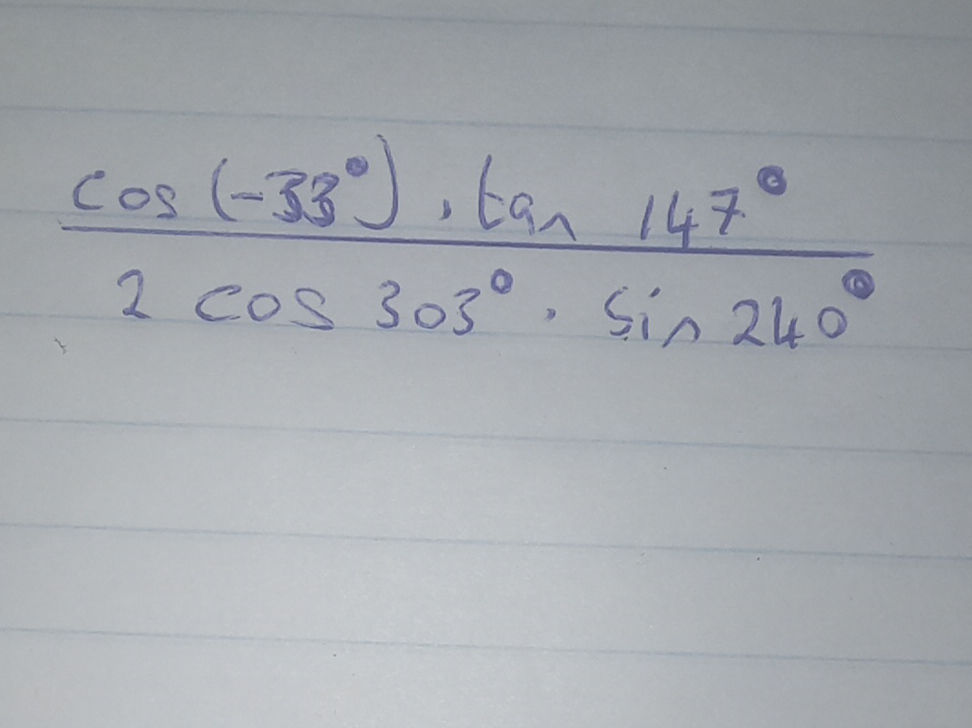 cos (-33°) . tan 147°
2 cos 303° . sin 240°